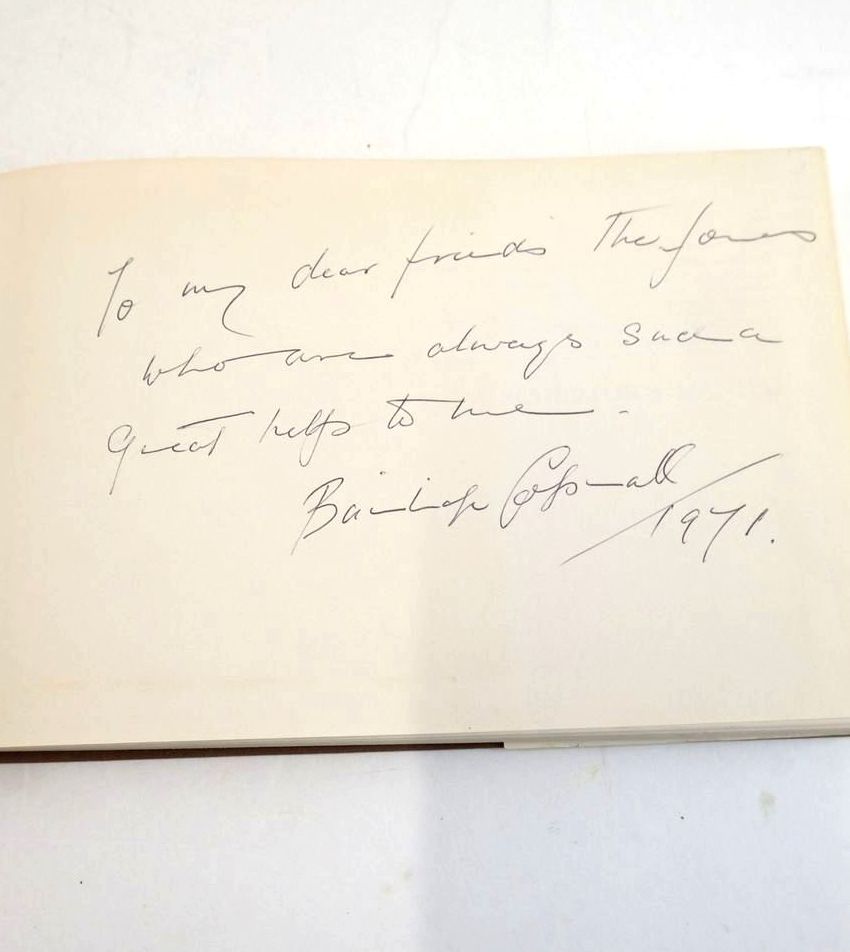 To my dear friends The Jones
who are always such a
great help to me.
Bainbridge Copnall
1971.